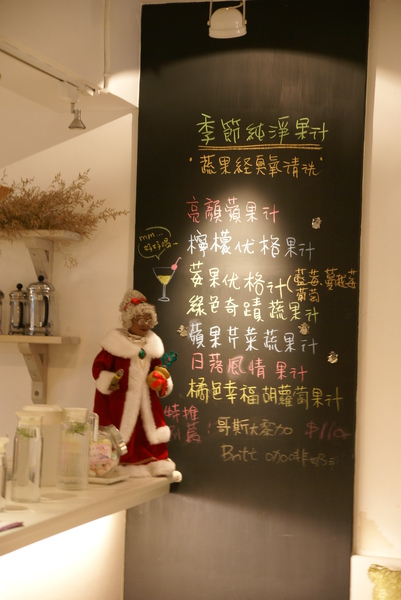 季節純淨果汁
"蔬果經臭氧清洗"
高顏蘋果汁
mm...
好好喝~
檸檬优格果汁
莓果优格汁(藍莓.蔓越莓
葡萄
綠色奇蹟蔬果汁
蘋果芹菜蔬果汁
日落風情果汁
橘色幸福胡蘿蔔果汁
特推
薦：哥斯大黎加 $110
咖啡